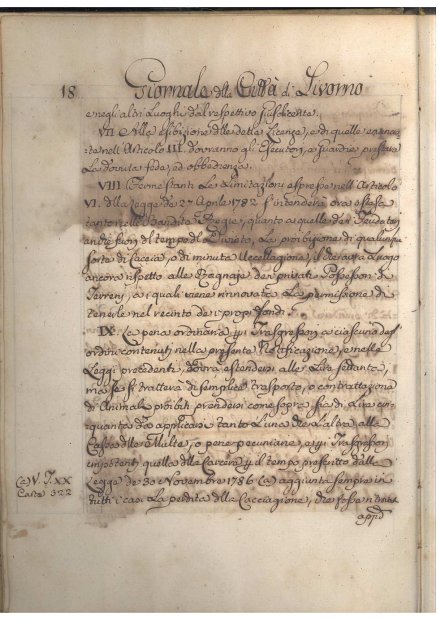 18 Giornale della Città di Livorno
e negli altri Luoghi dal respettivo Giusdicente.
VII Alla esibizione delle dette Licenze, e di quelle
nell'Articolo III. dovranno gli Esecutori, e Guardie prestare
La dovuta fede, ed obbedienza.
VIII Ferme stanti Le Limitazioni espresse nell'Articolo
VI. della Legge de 27 Aprile 1782 s'intenderà ora estesa
tanto nelle Bandite Regie, quanto a quelle dei Feudatarj
anche fuori del tempo di Divieto, La proibizione di qualunque
sorte di Caccia, o di minuta Uccellagione, il che avrà Luogo
ancora rispetto alle Ragnaje dei privati Possessori di
Terreni, a i quali viene rinnovata La permissione di
tenerle nel recinto de i proprj fondi.
IX La pena ordinaria per i Trasgressori a ciascuno degl'
ordini contenuti nella presente Notificazione, e nelle
Leggi precedenti, dovrà estendersi alle Lire settanta,
ma se si tratterà di semplice trasporto, o contrattazione
di Animali proibiti prendersi come sopra sia di Lire cin-
quanta da applicarsi tanto L'una che L'altra alla
Cassa delle Multe, o pene pecuniarie, e per i Trasgressori
impotenti quella della Carcere per il tempo prescritto dalla
Legge de 30 Novembre 1786 (a) aggiunta sempre in
tutti i casi La perdita della Cacciagione, che fosse
appo
(a) V. T. XX
Carte 322